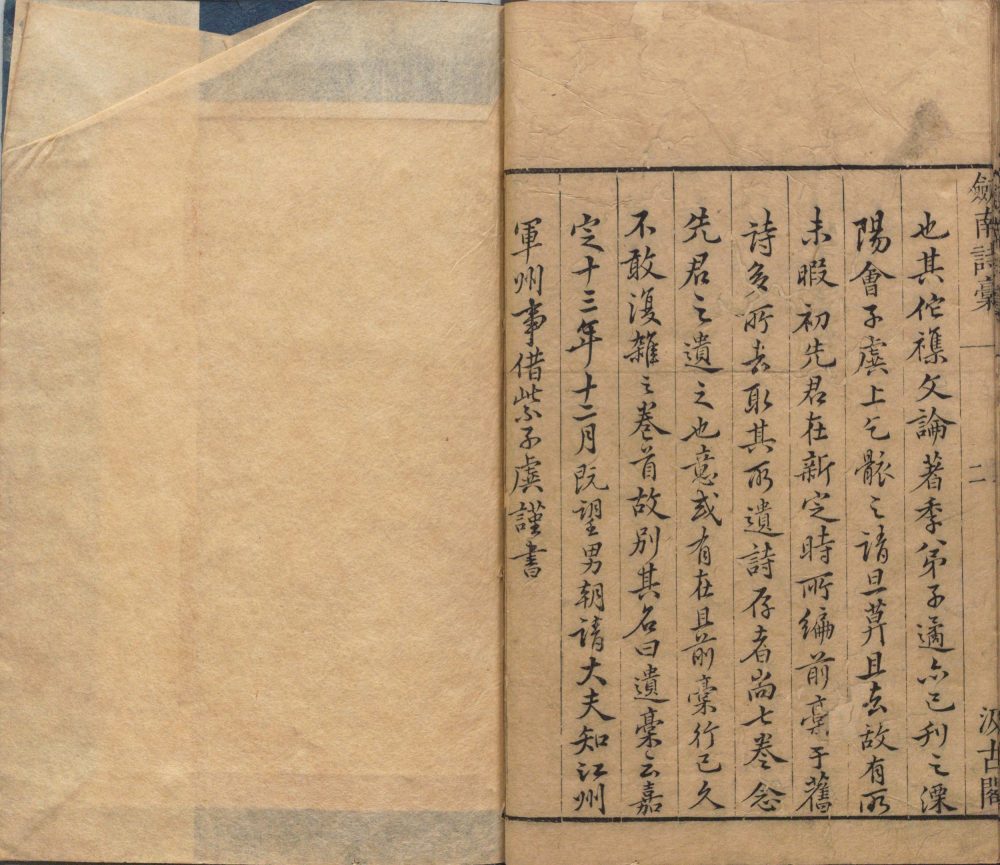 劎南詩稾
二
汲古閣
也其佗襍文論著季弟子遹亦已刋之溧
陽會子虡上乞骸之請旦莫且去故有所
未暇初先君在新定時所編前稾于舊
詩多所去取其所遺詩存者尚七卷念
先君之遺之也意或有在且前稾行已久
不敢復雜之卷首故別其名曰遺稾云嘉
定十三年十二月既望男朝請大夫知江州
軍州事借紫子虡謹書